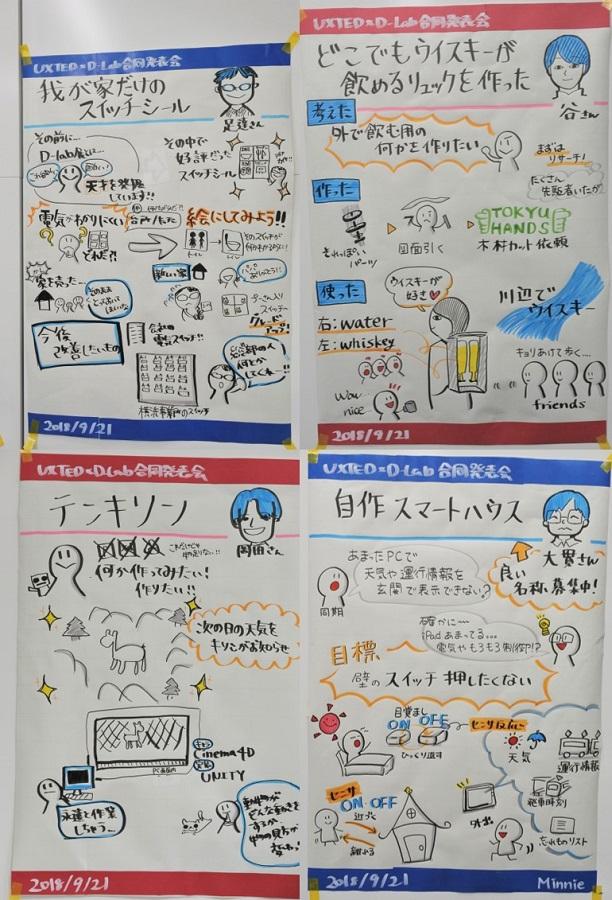 UXTED × D-Lab 合同発表会
我が家だけの
スイッチシール
足達さん
その前に…
D-lab展に…
天才を発掘
しています!!
その中で
好評だった
スイッチシール
電気がわかりにくい
それだ!!
絵にしてみよう!!
家を売った…
新しい家
今後
改善したいもの
会社の
電気スイッチ!!
横浜事務所のスイッチ
2018/9/21
UXTED × D-Lab 合同発表会
どこでもウイスキーが
飲めるリュックを作った
谷さん
考えた
外で飲む用の
何かを作りたい
まずは
リサーチ!
たくさん
先駆者いたが
作った
それっぽい
パーツ
図面引く
TOKYU
HANDS
木材カット依頼
使った
ウイスキーが
好き
川辺で
ウイスキー
右:water
左:whiskey
キョリあけて歩く…
wow
nice
friends
2018/9/21
UXTED × D-Lab 合同発表会
テンキリン
岡田さん
何か作ってみたい!
作りたい!!
次の日の天気を
キリンがお知らせ
PC画面内
Cinema4D
UNITY
永遠と作業
しちゃう…
動物が
どんな動きを
するか
物の見方が
変わる!
2018/9/21
UXTED × D-Lab 合同発表会
自作スマートハウス
大貫さん
良い
名称募集中!
あまったPCで
天気や運行情報を
玄関で表示できない?
同期
確かに〜
iPadあまってる…
電気やもろもろ制御!?
目標
壁のスイッチ押したくない
目覚まし
ON OFF
ひっくり返す
センサ反応に
天気
運行情報
発車時刻
忘れものリスト
センサ
ON OFF
近づく
離れる
外出
2018/9/21
Minnie